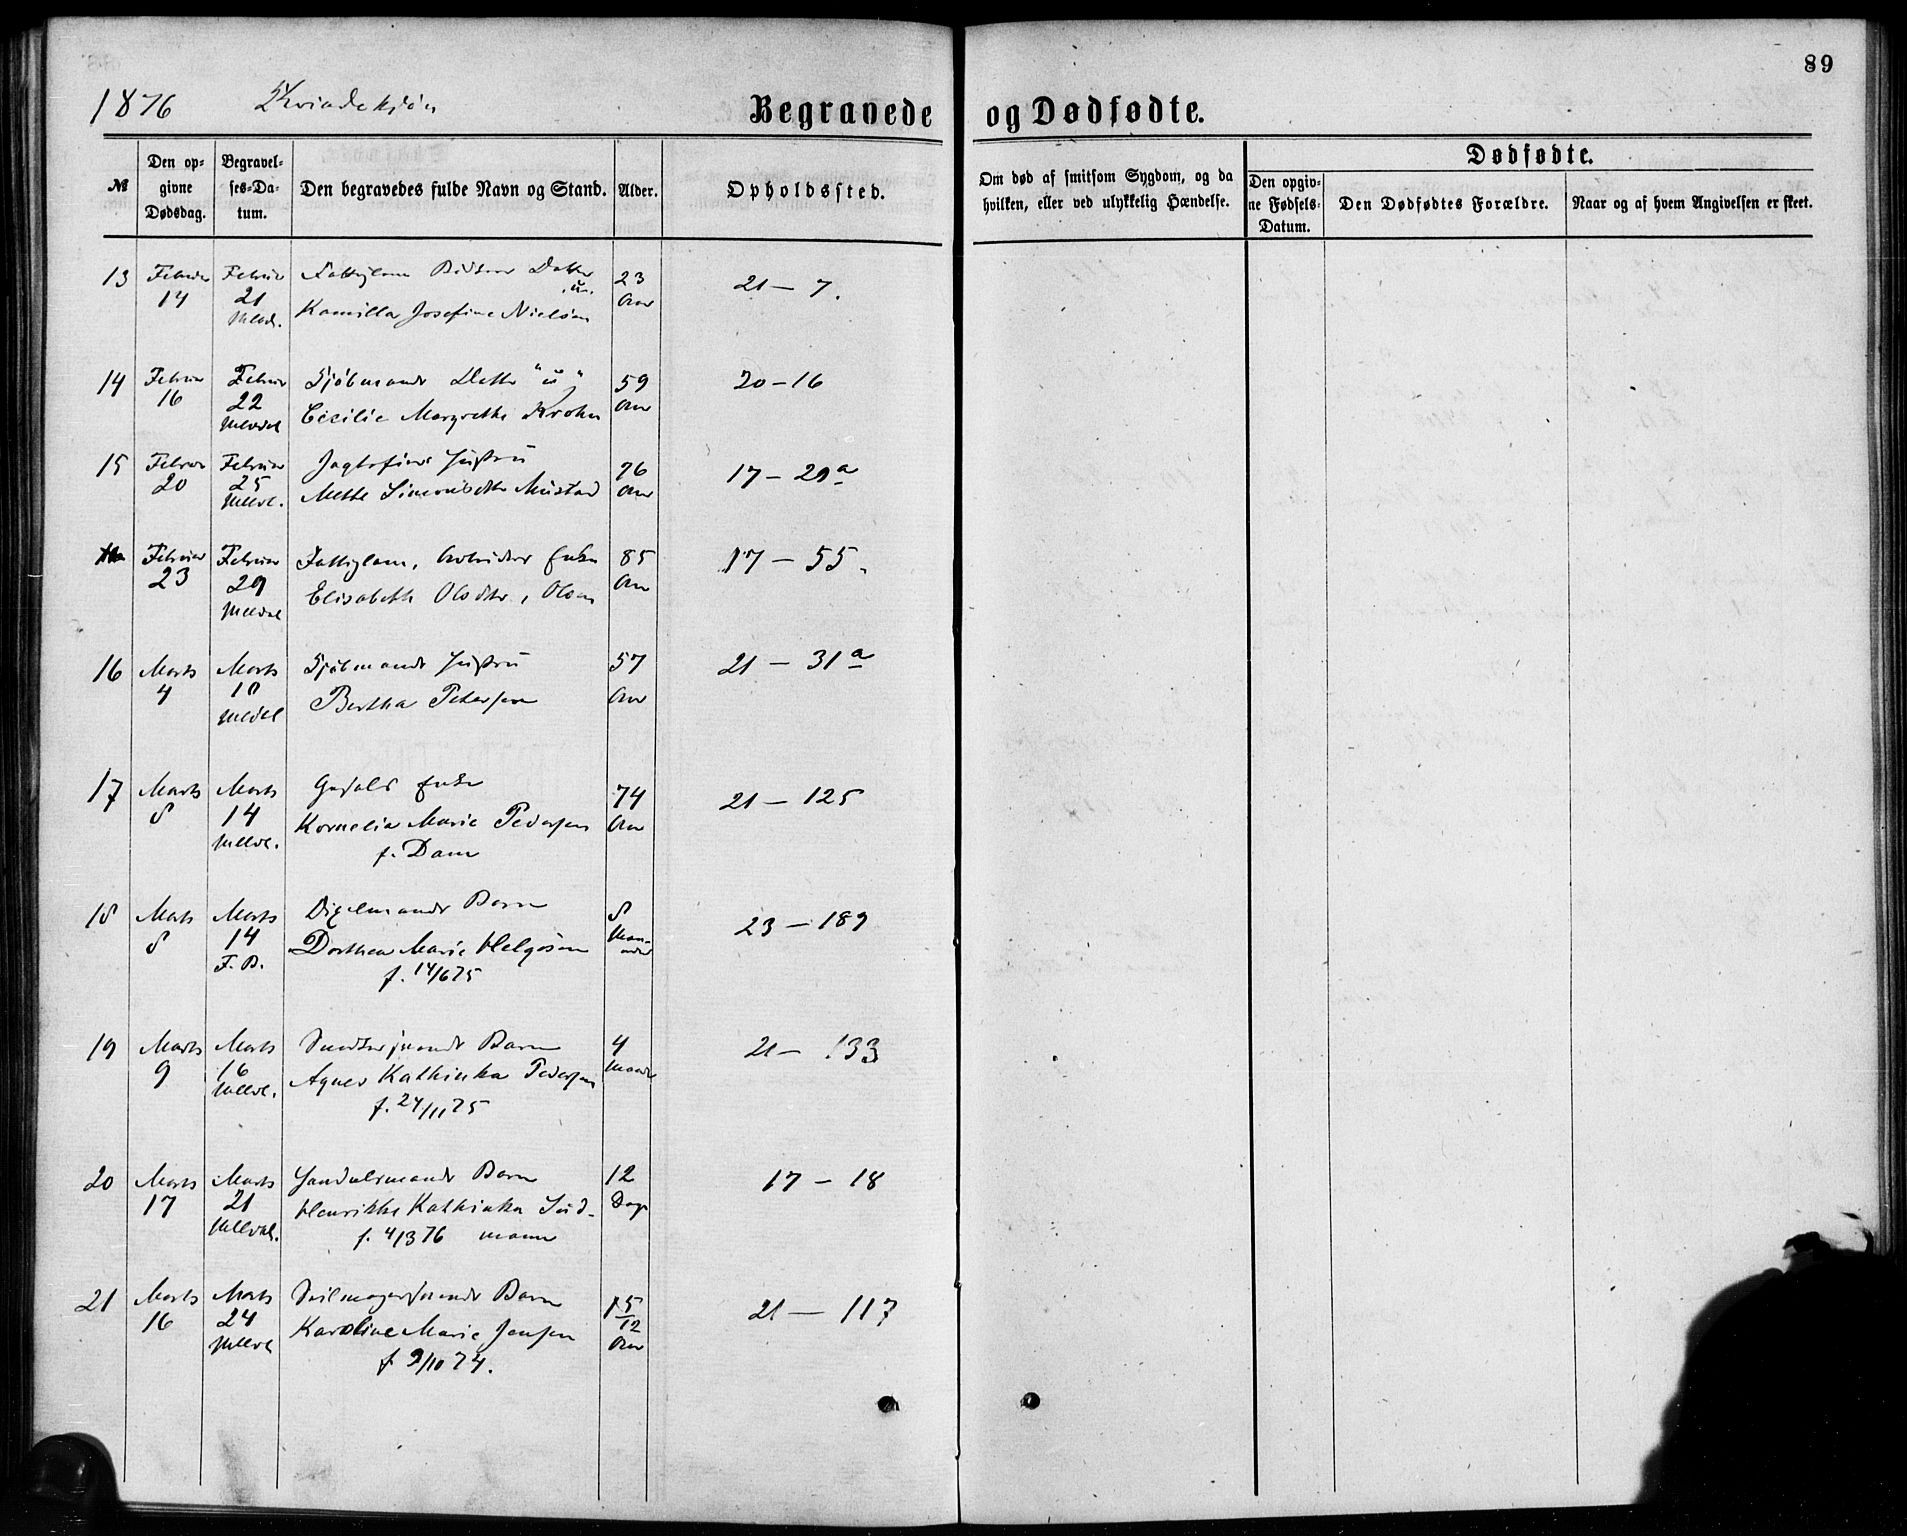 89
1876 Kvindekjøn
Begravede og Dødfødte.
№
Den opgivne Dødsdag.
Begravelses-Datum.
Den begravedes fulde Navn og Stand.
Alder.
Opholdssted.
Om død af smitsom Sygdom, og da hvilken, eller ved ulykkelig Hændelse.
Dødfødte.
Den opgivne Fødsels-Datum.
Den Dødfødtes Forældre.
Naar og af hvem Angivelsen er skeet.
13 Februar 14 Februar 21 Datter "u" 23 Aar 21 – 7.
Kamilla Josefine Nielsen
14 Februar 16 Februar 22 Sjøemands Datter "u" 59 Aar 20 – 16
Cecilie Margrethe Krohn
15 Februar 20 Februar 25 Hustru 76 Aar 17 – 29a
Mette Simonsdtr Mustad
Februar 23 Februar 29 Fattiglem, Arbeiders Enke 85 Aar 17 – 55.
Elisabeth Olsdtr, Olsen
16 Marts 4 Marts 10 Sjøemands Hustru 57 Aar 21 – 31a
Bertha Petersen
17 Marts 8 Marts 14 Enke 74 Aar 21 – 125
Kornelia Marie Pedersen
f. Dam
18 Marts 8 Marts 14 F. B. Barn 8 Maaneder 23 – 189
Dorthea Marie Helgesen
f. 14/6 75
19 Marts 9 Marts 16 Barn 4 Maander 21 – 133
Agnes Kathinka Pedersen
f. 24/11 75
20 Marts 17 Marts 21 Handelsmands Barn 12 Dage 17 – 18
Henrikke Kathinka Sud-
f. 4/3 76 mann
21 Marts 16 Marts 24 Seilmagersvends Barn 1 5/12 Aar 21 – 117
Karoline Marie Jensen
f 9/10 74.